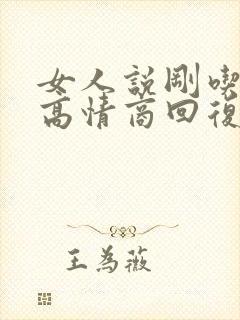 女人說剛喫
高情商回復
王為薇